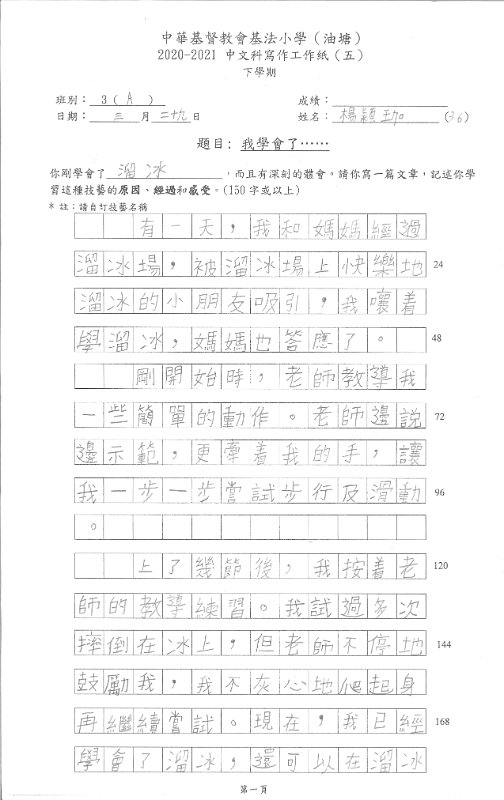 中華基督教會基法小學（油塘）
2020-2021 中文科寫作工作紙（五）
下學期
班別： 3（ A ） 成績：
日期： 三 月 二十九 日 姓名： 楊穎珈 (36)
題目：我學會了⋯⋯
你剛學會了 溜冰 ，而且有深刻的體會。請你寫一篇文章，記述你學
習這種技藝的原因、經過和感受。(150 字或以上)
* 註：請自訂技藝名稱
有一天，我和媽媽經過
溜冰場，被溜冰場上快樂地 24
溜冰的小朋友吸引，我嚷着
學溜冰，媽媽也答應了。 48
剛開始時，老師教導我
一些簡單的動作。老師邊說 72
邊示範，更牽着我的手，讓
我一步一步嘗試步行及滑動 96
。
上了幾節後，我按着老 120
師的教導練習。我試過多次
摔倒在冰上，但老師不停地 144
鼓勵我，我不灰心地爬起身
再繼續嘗試。現在，我已經 168
學會了溜冰，還可以在溜冰
第一頁